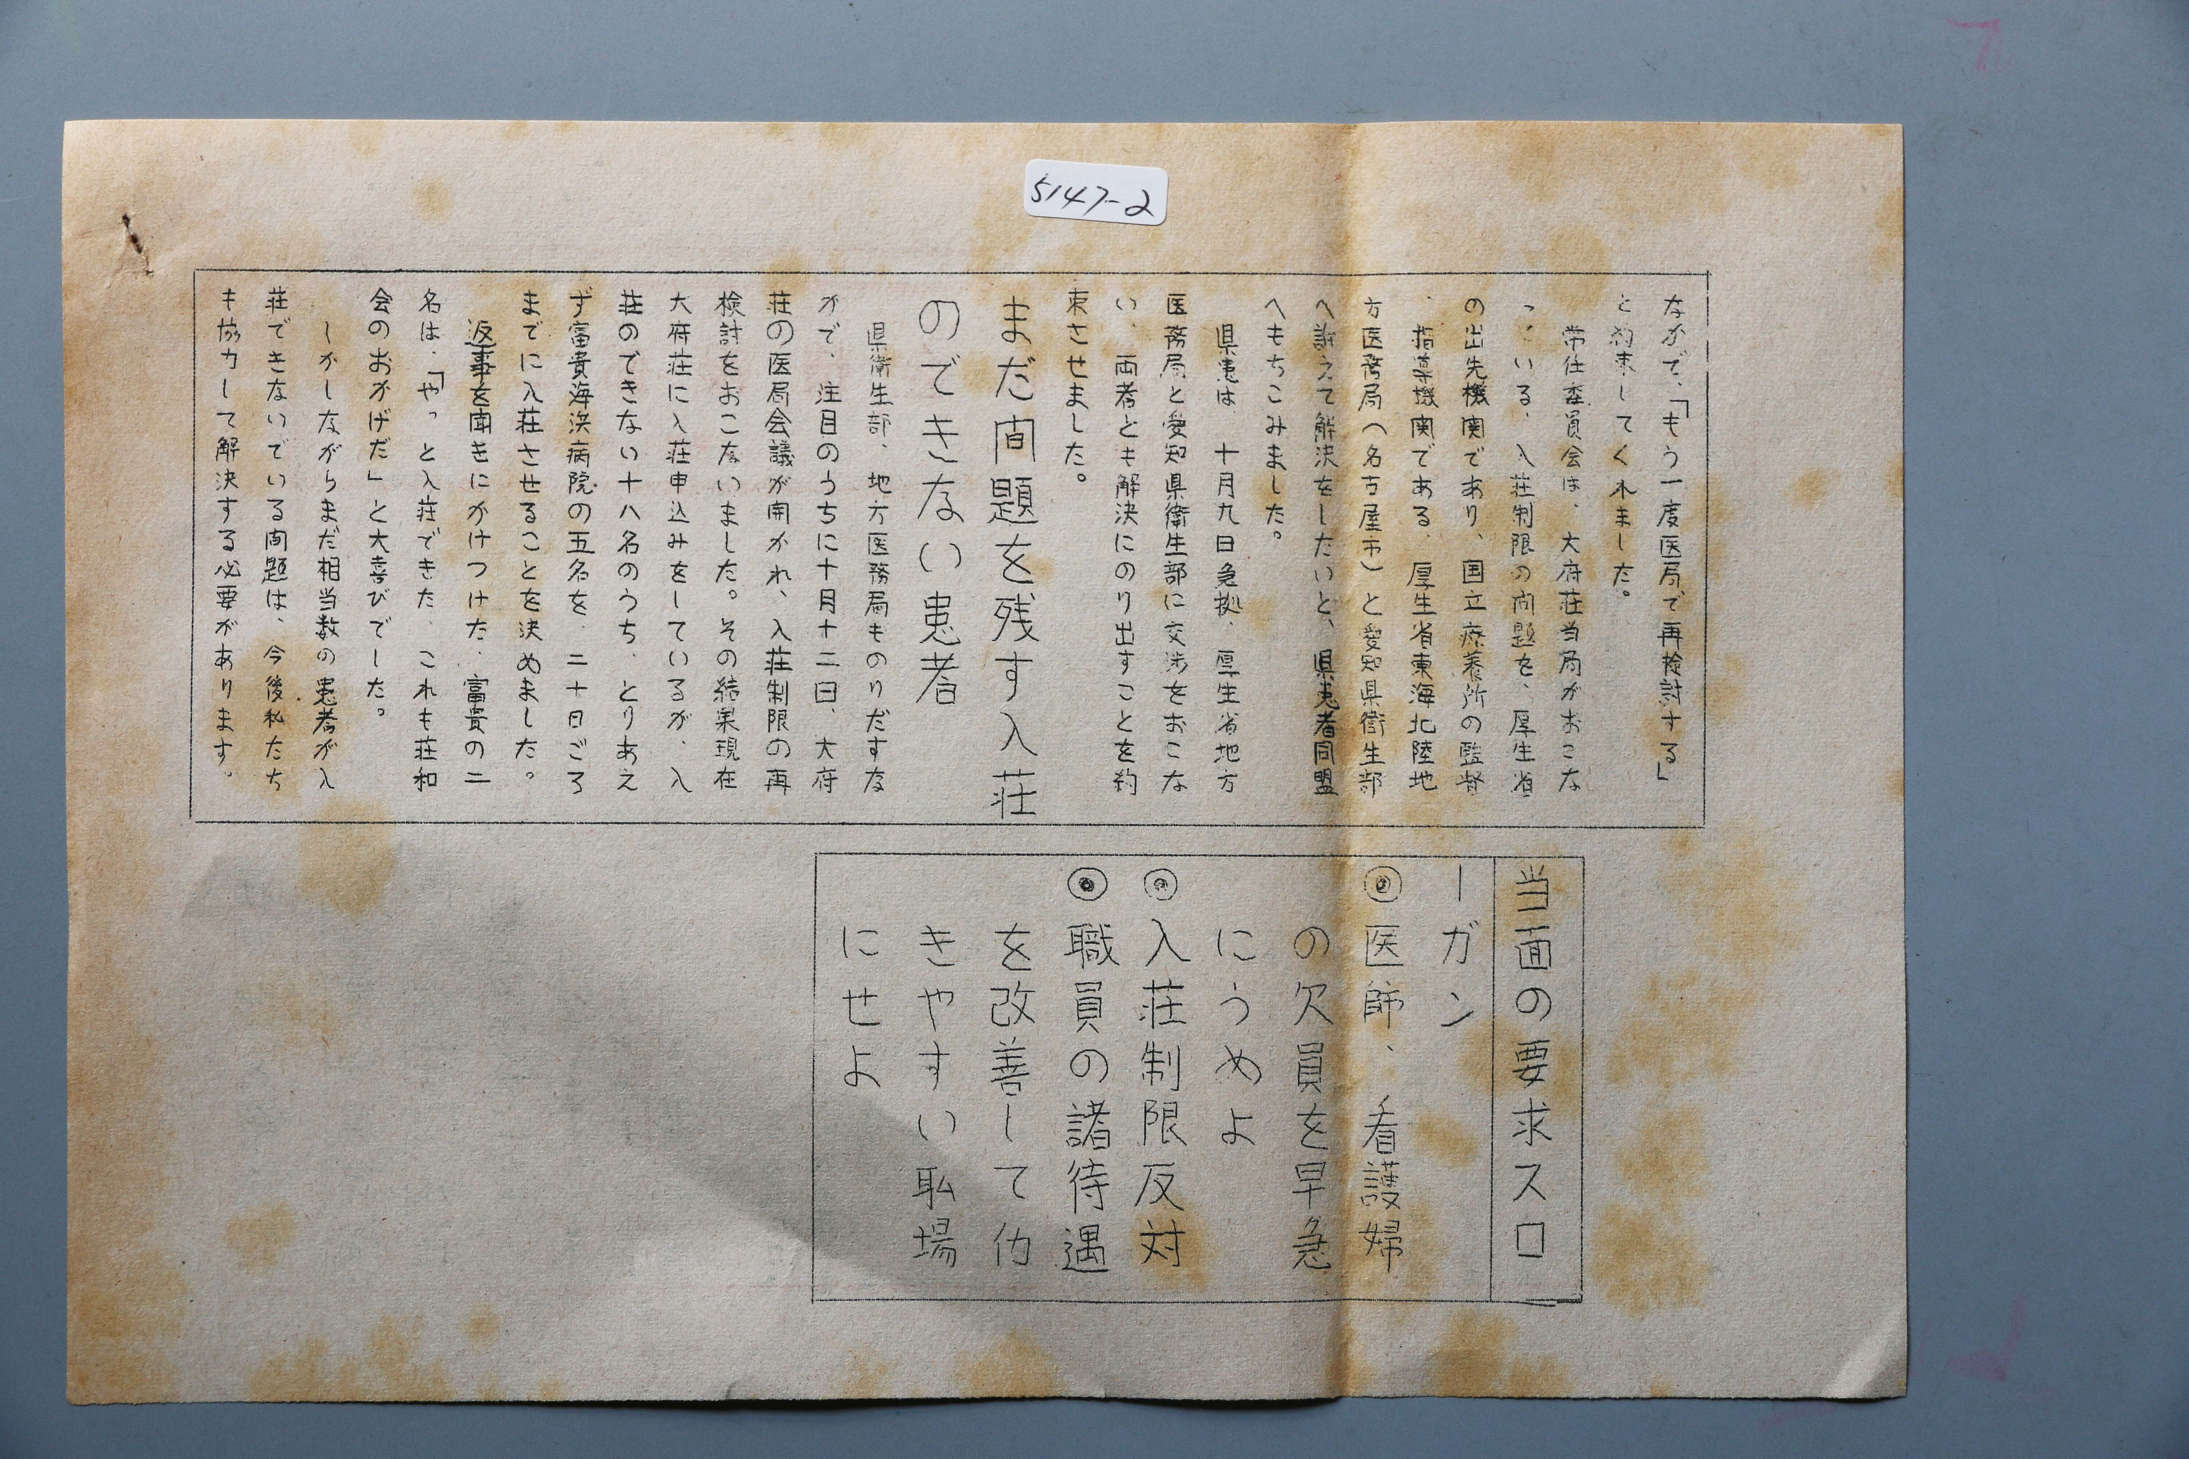 5147-2
なかで、「もう一度医局で再検討する」
と約束してくれました。
常任委員会は、大府荘当局がおこな
っている、入荘制限の問題を、厚生省
の出先機関であり、国立療養所の監督
、指導機関である、厚生省東海北陸地
方医務局(名古屋市)と愛知県衛生部
へ訴えて解決をしたいと、県患者同盟
へもちこみました。
県患は、十月九日急拠、厚生省地方
医務局と愛知県衛生部に交渉をおこな
い、両者とも解決にのり出すことを約
束させました。
まだ問題を残す入荘
のできない患者
県衛生部、地方医務局ものりだすな
かで、注目のうちに十月十二日、大府
荘の医局会議が開かれ、入荘制限の再
検討をおこないました。その結果現在
大府荘に入荘申込みをしているが、入
荘のできない十八名のうち、とりあえ
ず富貴海浜病院の五名を、二十日ごろ
までに入荘させることを決めました。
返事を聞きにかけつけた、富貴の二
名は、「やっと入荘できた、これも荘和
会のおかげだ」と大喜びでした。
しかしながらまだ相当数の患者が入
荘できないでいる問題は、今後私たち
も協力して解決する必要があります。
当面の要求スロ
ーガン
◎医師、看護婦
の欠員を早急
にうめよ
◎入荘制限反対
◎職員の諸待遇
を改善して仂
きやすい耺場
にせよ